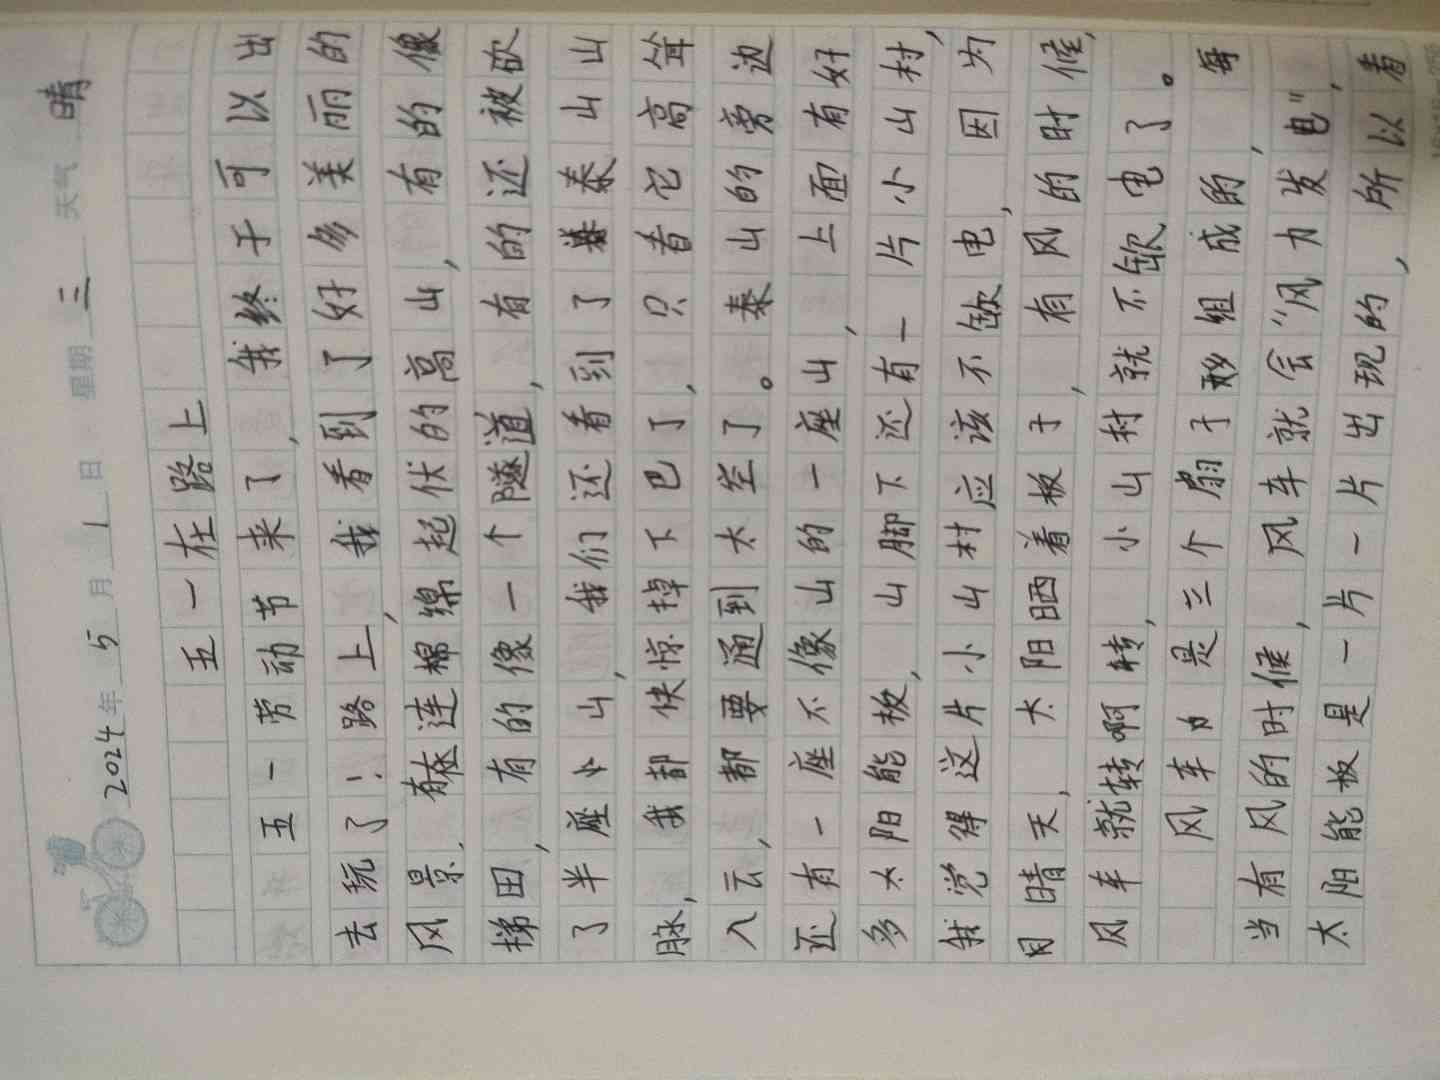 2024年5月1日 星期三 天气 晴
五一在路上
五一劳动节来了,我终于可以出
去玩了!路上,我看到了好多美丽的
风景.有连棉绵起伏的高山,有的像
梯田,有的像一个隧道,有的还被砍
了半座山,我们还看到了泰山山
脉,我都快惊掉下巴了,只看它高耸
入云,都要通到太空了。泰山的旁边
还有一座不像山的一座山,上面有好
多太阳能板,山脚下还有一片小山村,
我觉得这片小山村应该不缺电,因为
因晴天,太阳晒着板子,有风的时候,
风车就转啊转,小山村就不缺电了。
风车是三个扇子形组成的,每
当有风的时候,风车就会"风力发电",
太阳能板是一片一片出现的,所以看